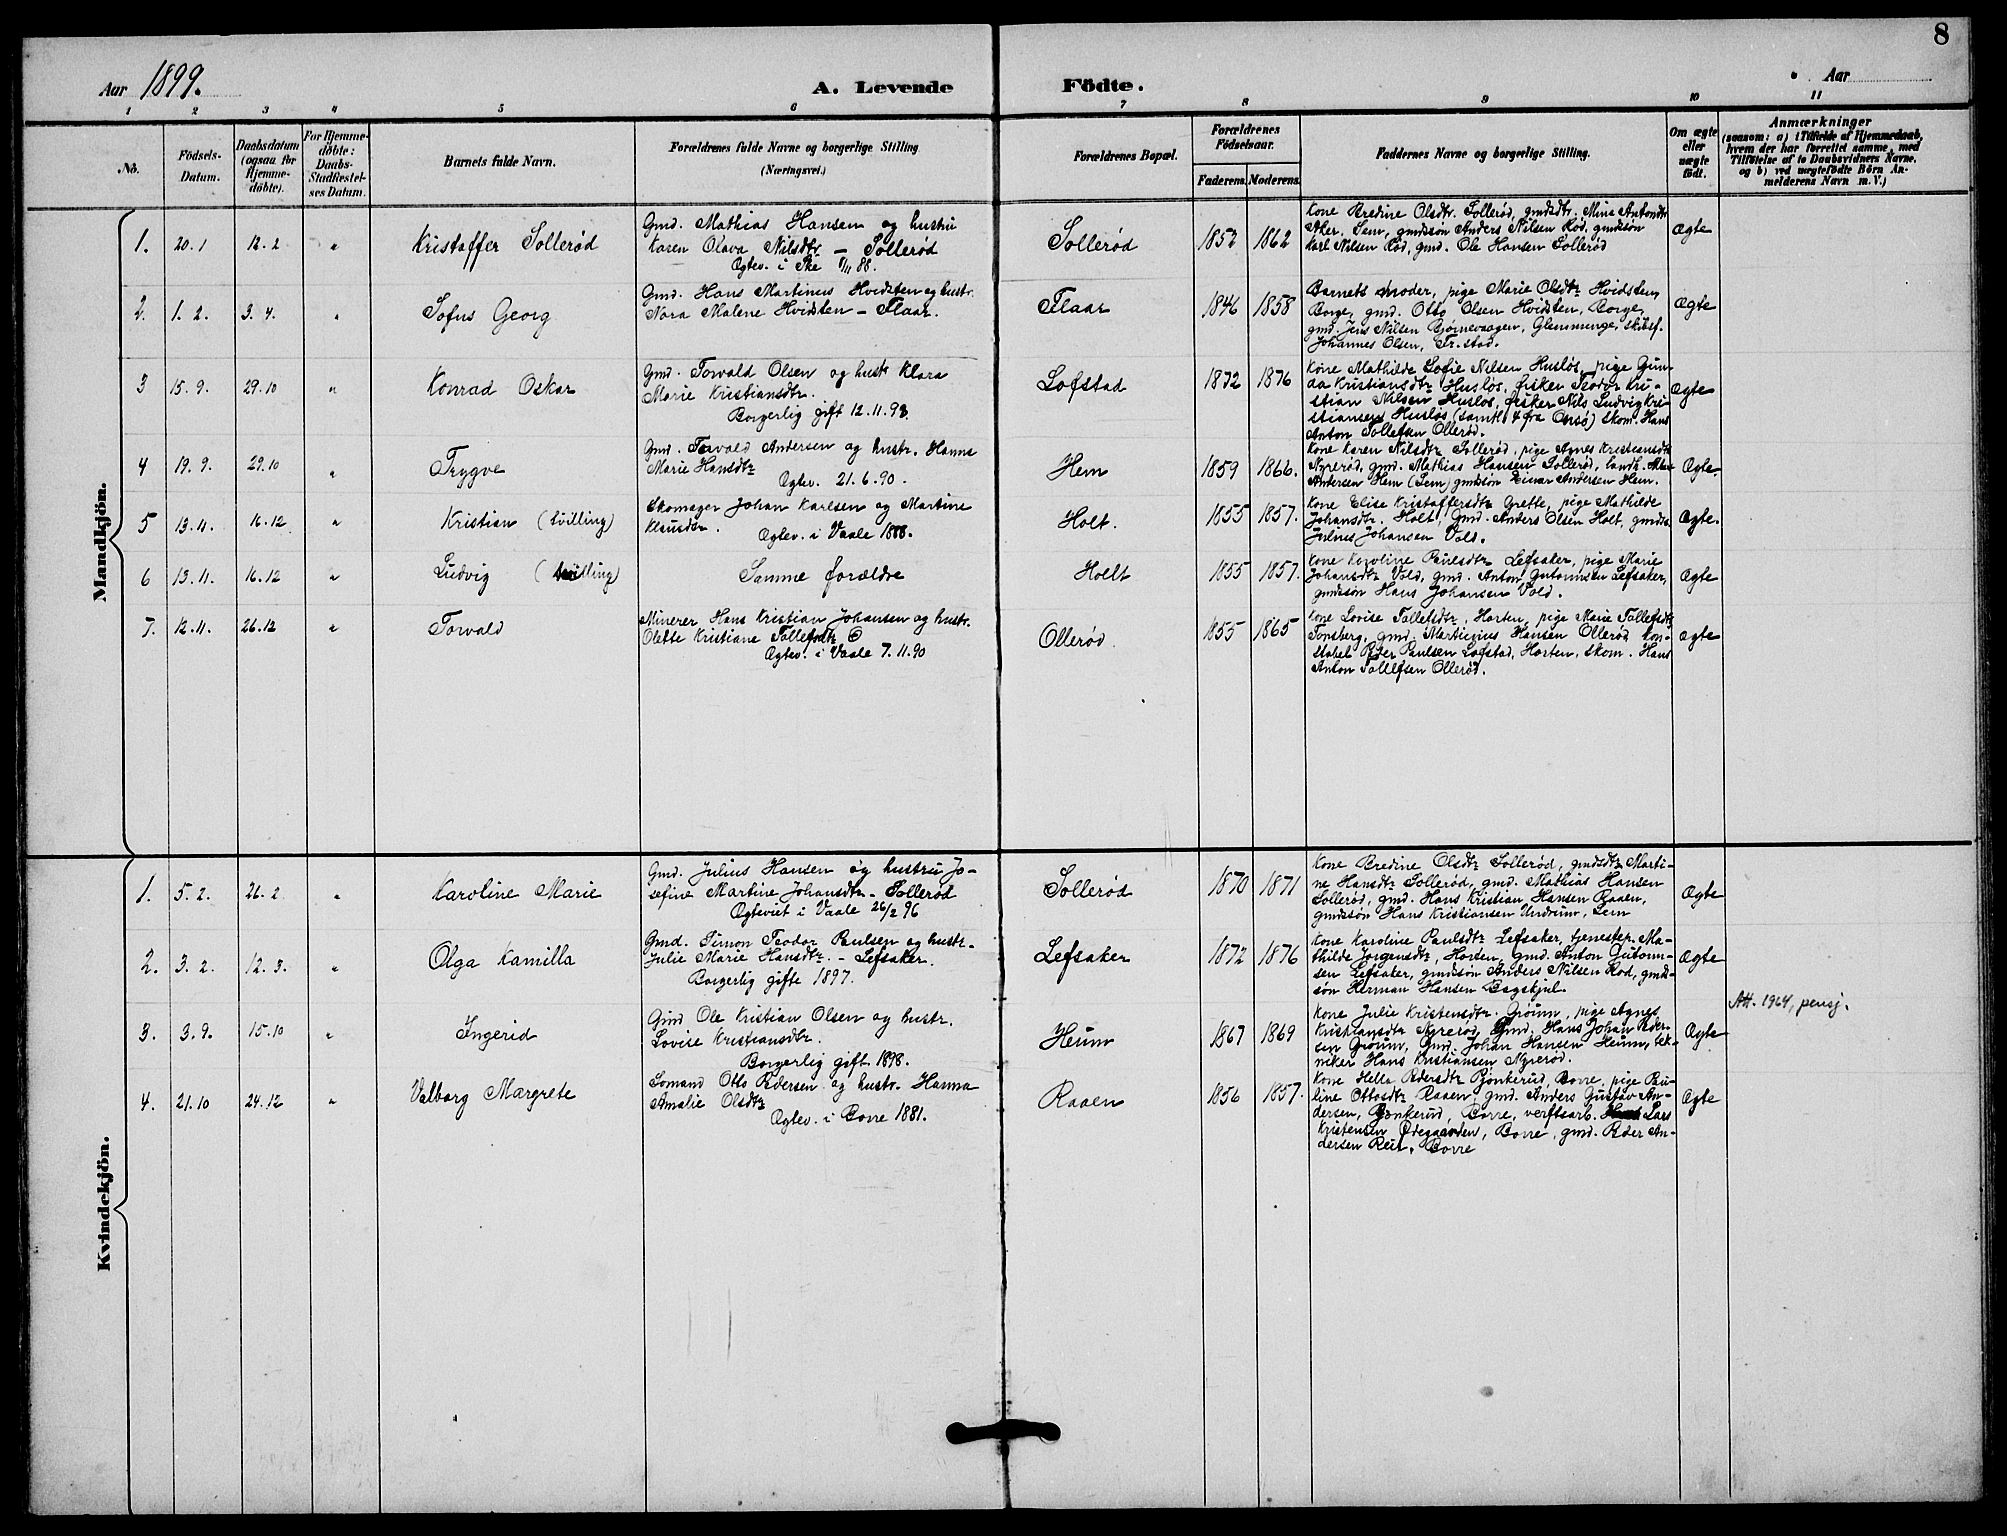 8
Aar 1899.
A. Levende Födte.
Aar
1 2 3 4 5 6 7 8 9 10 11
No.
Födsels-
Datum.
Daabsdatum
(ogsaa for
Hjemme-
döbte).
For Hjemme-
döbte:
Daabs-
Stadfæstel-
ses Datum.
Barnets fulde Navn.
Forældrenes fulde Navne og borgerlige Stilling
(Næringsvei.)
Forældrenes Bopæl.
Forældrenes
Födselsaar.
Faderens. Moderens.
Faddernes Navne og borgerlige Stilling.
Om ægte
eller
uægte
födt.
Anmærkninger
(saasom: a) i Tilfælde af Hjemmedaab,
hvem der har forrettet samme, med
Tilföielse af to Daabsvidners Navne,
og b) ved uægtefödte Börn An-
melderens Navn m. V.)
Mandkjön.
1. 20.1 12.2 " Kristoffer Sollerød
Gmd. Mathias Hansen og hustru
Karen Olava Nilsdtr — Sollerød
Ægtev. i Ske 8/11 88.
Sollerød 1852 1862
Kone Bredine Olsdtr. Sollerød, gmdsdtr. Mina Antondtr
Aker, Sem, gmdssøn Anders Nilsen Rød, gmdssøn
Karl Nilsen Rød, gmd. Ole Hansen Sollerød
Ægte
2. 1.2. 3.4. " Sofus Georg
Gmd. Hans Martinus Hvidsten og hustr.
Nora Malene Hvidsten — Flaar.
Flaar 1846 1858
Barnets Moder, pige Marie Olsdtr Hvidsten,
Borge, gmd. Otto Olsen Hvidsten, Borge,
gmd. Jens Nilsen Bjørnevaagen, Glemminge, skibsf.
Johannes Olsen, Fr.stad.
Ægte
3 15.9. 29.10 " Konrad Oskar
Gmd. Torvald Olsen og hustr Klara
Marie Kristiansdtr.
Borgerlig gift 12.11.98.
Lofstad 1872 1876
Kone Mathilde Sofie Nilsen Husløs, pige Gun-
da Kristiansdtr Husløs, fisker Teodor Kri-
stian Nilsen Husløs, fisker Nils Ludvig Kri-
stiansen Husløs (samtl. 4 fra Onsø) skom. Hans
Anton Tollefsen Ollerød.
Ægte
4 19.9. 29.10 " Trygve
Gmd. Torvald Andersen og hustr. Hanna
Marie Hansdtr
Ægtev. 21.6.90.
Hem 1859 1866.
Kone Karen Nilsdtr Sollerød, pige Agnes Kristiansdtr
Nyrerød, gmd. Mathias Hansen Sollerød, landh.
Andersen Hem (Sem) gmdssøn Einar Andersen Hem.
Ægte
5 13.11. 16.12 " Kristian (tvilling)
Skomager Johan Karlsen og Martine
Klausdtr.
Ægtev. i Vaale 1888.
Holt. 1855 1857.
Kone Elise Kristoffersdtr Grette, pige Mathilde
Johansdtr. Holt, Gmd. Anders Olsen Holt, gmdss.
Julius Johansen Vold.
Ægte.
6 13.11. 16.12 " Ludvig (tvilling)
Samme forældre
Holt 1855 1857.
Kone Karoline Paulsdtr Lefsaker, pige Marie
Johansdtr Vold, gmd. Anton Gutormsen Lefsaker,
gmdssøn Hans Johansen Vold.
Ægte
7. 12.11. 26.12 " Torvald
Minerer Hans Kristian Johansen og hustr.
Olette Kristiane Tollefsdtr
Ægtev. i Vaale 7.11.90
Ollerød. 1855 1865
Kone Lovise Tollefsdtr, Horten, pige Marie Tollefsdtr
Tønsberg, gmd. Martinius Hansen Ollerød, kon-
stabel Peder Paulsen Lofstad, Horten, skom. Hans
Anton Tollefsen Ollerød.
Ægte
Kvindekjön.
1. 5.2. 26.2 " Karoline Marie
Gmd. Julius Hansen og hustru Jo-
sefine Martine Johansdtr — Sollerød
Ægteviet i Vaale 26/2 96
Sollerød 1870 1871
Kone Bredine Olsdtr Sollerød, gmdsdtr Marti-
ne Hansdtr Sollerød, gmd. Mathias Hansen
Sollerød, gmd. Hans Kristian Hansen Raaen,
gmdssøn Hans Kristiansen Undrum, Sem
Ægte
2. 3.2. 12.3. " Olga Kamilla
Gmd. Simon Teodor Paulsen og hustr.
Julie Marie Hansdtr. — Lefsaker.
Borgerlig gifte 1897.
Lefsaker 1872 1876
Kone Karoline Paulsdtr Lefsaker, tjenestep. Ma-
thilde Jørgensdtr, Horten, gmd. Anton Gutorm-
sen Lefsaker, gmdssøn Anders Nilsen Rød, gmds-
søn Herman Hansen Bagskjul.
Ægte
3. 3.9. 15.10 " Ingerid
Gmd Ole Kristian Olsen og hustr.
Lovise Kristiansdtr.
Borgerlig gift 1898.
Heum 1867 1869
Kone Julie Kristensdtr. Grøum, pige Agnes
Kristiansdtr Nyrerød, Gmd. Hans Johan Peder-
sen Grøum, Gmd. Johan Hansen Heum, tek-
niker Hans Kristiansen Nyrerød.
Ægte
Att. 1964, pensj.
4. 21.10 24.12 " Valborg Margrete
Sømand Otto Pedersen og hustr. Hanna
Amalie Olsdtr
Ægtev. i Borre 1881.
Raaen 1856 1857.
Kone Hella Pedersdtr Bjønkerud, Borre, pige Pau-
line Ottosdtr Raaen gmd. Anders Gustav An-
dersen, Bjønkerud, Borre, verftsarb. Lars
Kristensen Ødegaarden, Borre, gmd. Peder An-
dersen Reir, Borre
Ægte